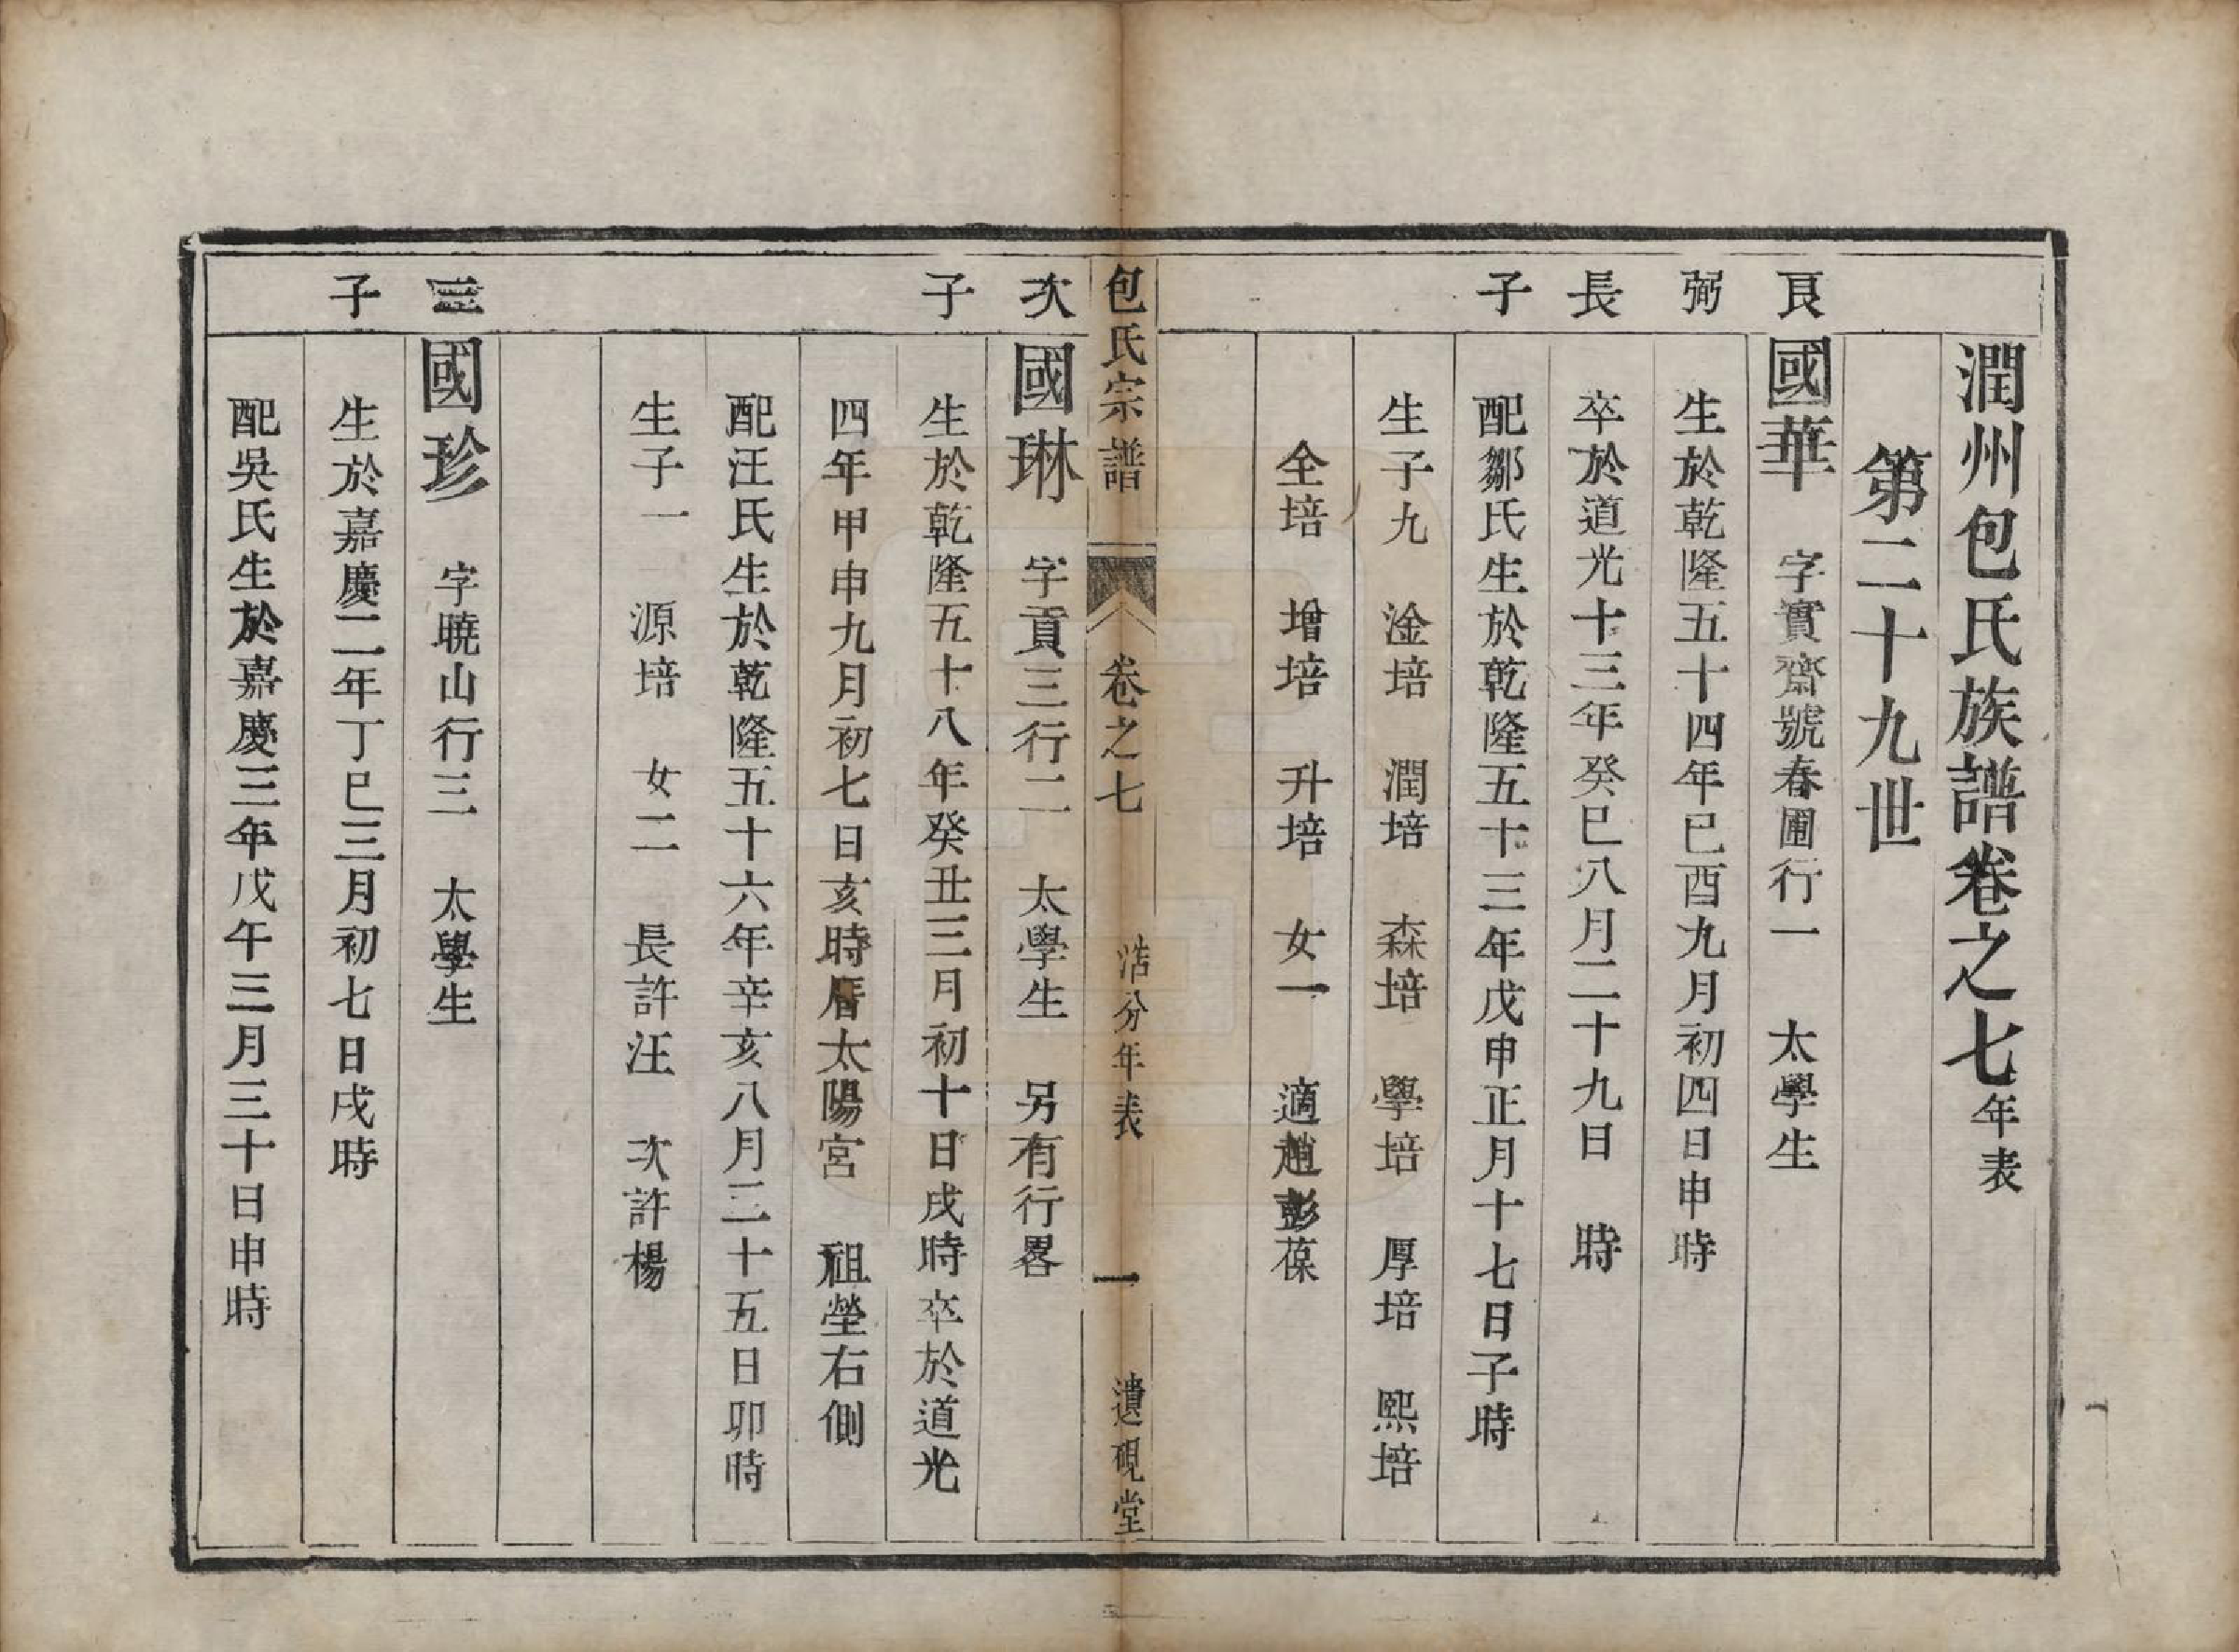 潤州包氏族譜卷之七年表
第二十九世
良弼長子
國華　字實齋號春圃行一　太學生
生於乾隆五十四年己酉九月初四日申時
卒於道光十三年癸巳八月二十九日　時
配鄒氏生於乾隆五十三年戊申正月十七日子時
生子九　淦培　潤培　森培　學培　厚培　熙培
全培　增培　升培　女一　適趙彭葆
包氏宗譜　卷之七　浩分年表　一　遺硯堂
次子
國琳　字貢三行二　太學生　另有行畧
生於乾隆五十八年癸丑三月初十日戌時卒於道光
四年甲申九月初七日亥時厝太陽宮　祖塋右側
配汪氏生於乾隆五十六年辛亥八月二十五日卯時
生子一　源培　女二　長許汪　次許楊
三子
國珍　字曉山行三　太學生
生於嘉慶二年丁巳三月初七日戌時
配吳氏生於嘉慶三年戊午三月三十日申時